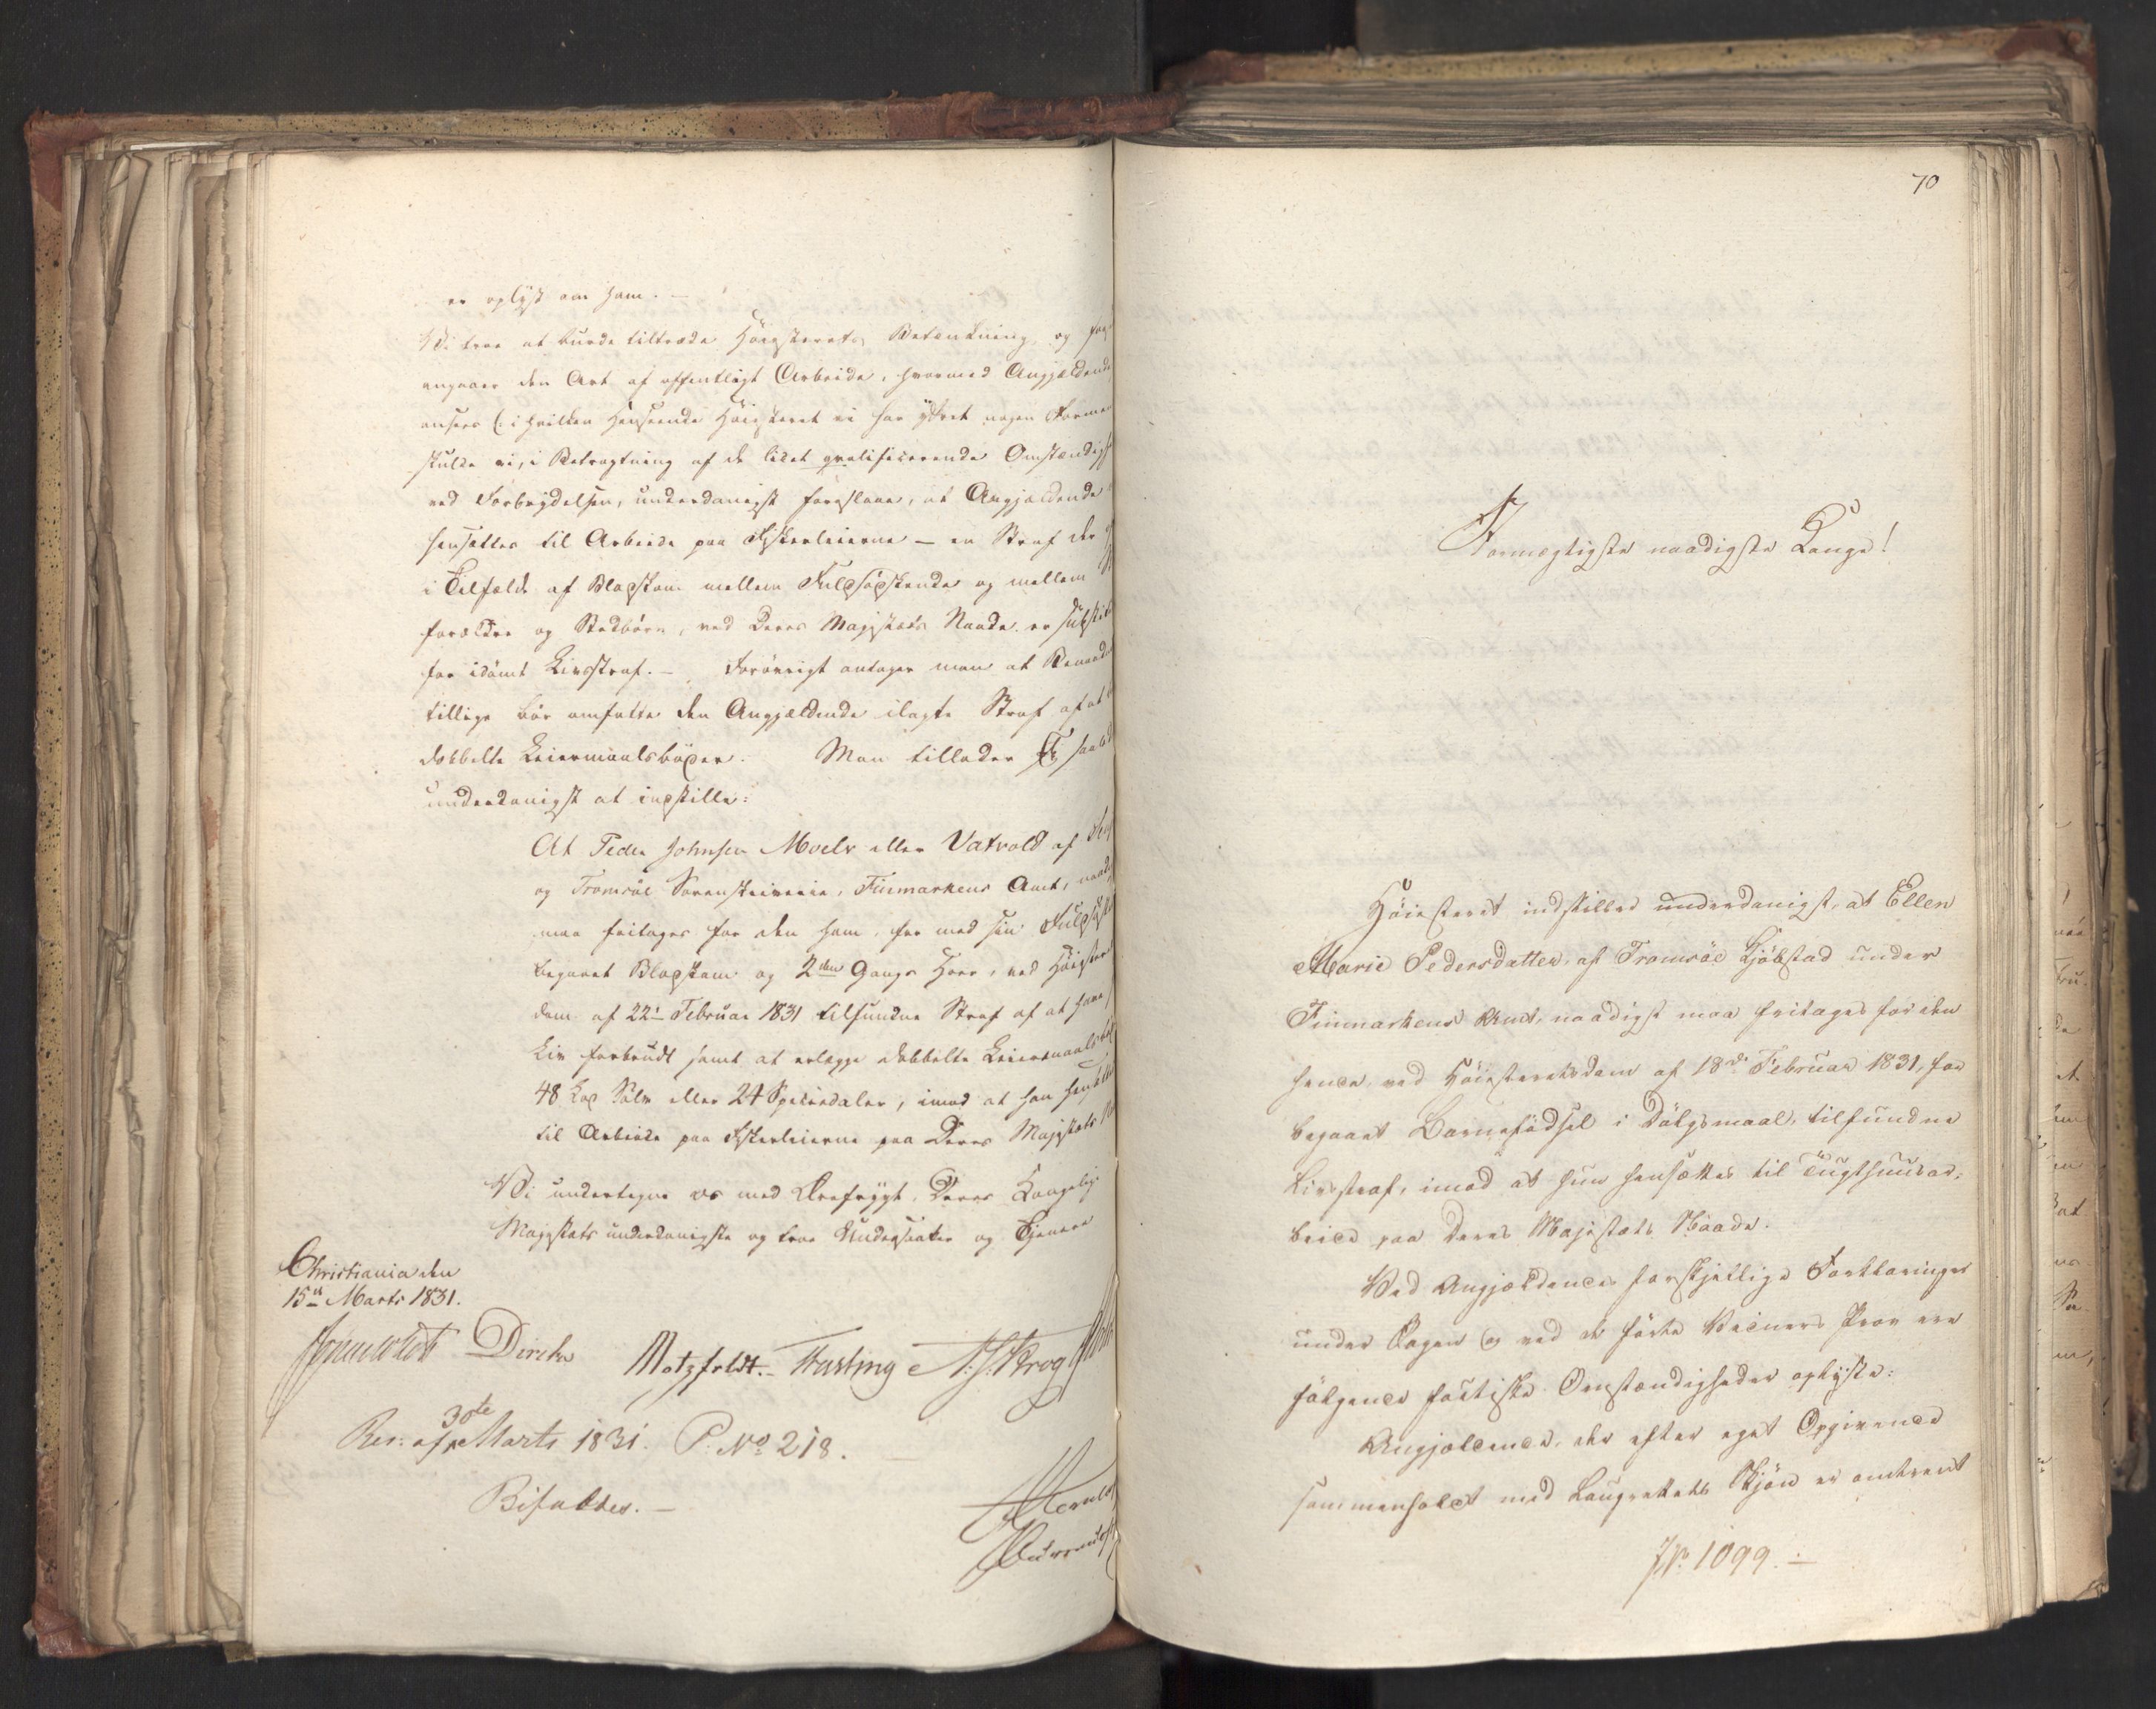 er oplyst om ham. —
Vi troe at burde tiltræde Höiesterets Betænkning, og
angaaer den Art af offentligt Arbeide, hvormed Angjældende
ansees (: i hvilken Henseende Höiesteret ei har yttret nogen
skulde vi, i Betragtning af de lidet qvalificerende
ved Forbrydelsen, underdanigst foreslaae, at Angjældende
hensættes til Arbeide paa Fiskerleierne — en Straf der
i Tilfælde af Blodskam mellem Fuldsödskende og mellem
forældre og Stedbörn, ved Deres Majestæts Naade er
for idömt Livsstraf. — Forövrigt antager man at
tillige bör omfatte den Angjældende ilagte Straf af at
dobbelte Leiermaalsböder. Man tillader
underdanigst at indstille:
At Peder Johnsen Moelv eller Vatvold af
og Tromsöe Sorenskriverie, Finmarkens Amt,
maa fritages for den ham, for med sin
begaaet Blodskam og 2den Gangs Hoer, ved
dom af 22de Februar 1831 tilfundne Straf af at have
Liv forbrudt samt at erlægge dobbelte
48 Lod Sölv eller 24 Speciedaler, imod at han
til Arbeide paa Fiskerleierne paa Deres Majestæts
Vi undertegne os med Ærefrygt, Deres Kongelige
Majestæts underdanigste og troe Undersaatter og Tjenere
Christiania den
15de Marts 1831.
Diriks Motzfeldt. Fasting N. J. Krog
30te
Res: af Marts 1831. P: No 218.
Bifaldes. —
70
Stormægtigste naadigste Konge!
Höiesteret indstiller underdanigst, at Ellen
Marie Pedersdatter, af Tromsöe Kjöbstad under
Finmarkens Amt, naadigst maa fritages for den
hende, ved Höiesteretsdom af 18de Februar 1831, for
begaaet Barnefödsel i Dölgsmaal, tilfundne
Livsstraf, imod at hun hensættes til Tugthuusar-
beide paa Deres Majestæts Naade.
Ved Angjældendes forskjellige Forklaringer
under Sagen og ved de förte Vidners Prov ere
fölgende factiske Omstændigheder oplyste:
Angjældende, der efter eget Opgivende
sammenholdt med Laugrettets Skjön er omtrent
1099. —